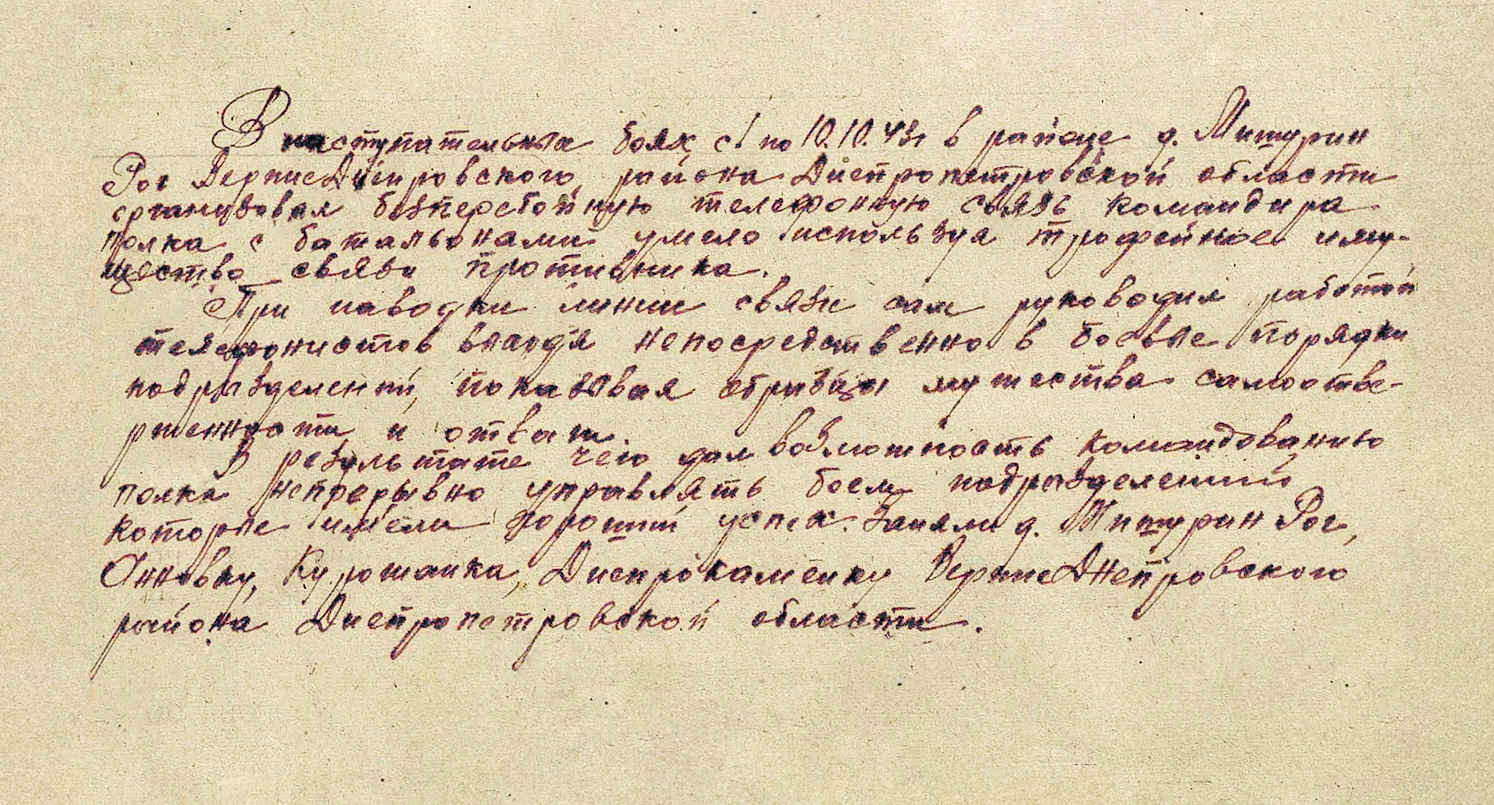 В наступательных боях с 1 по 10.10.43г в районе д. Мишурин
Рог ВерхнеДнепровского района Днепропетровской области
организовал безперебойную телефонную связь командира
полка с батальонами умело используя трофейное иму-
щество связи противника.
При наводки линии связи сам руководил работой
телефонистов выходя непосредственно в боевые порядки
подразделений, показывая образцы мужества самоотве-
рженности и отваги.
В результате чего дал возможность командованию
полка непрерывно управлять боем подразделений
которые имели хороший успех. Заняли д. Мишурин Рог,
Анновку, Курошанка, Днепрокаменку ВерхнеДнепровского
района Днепропетровской области.